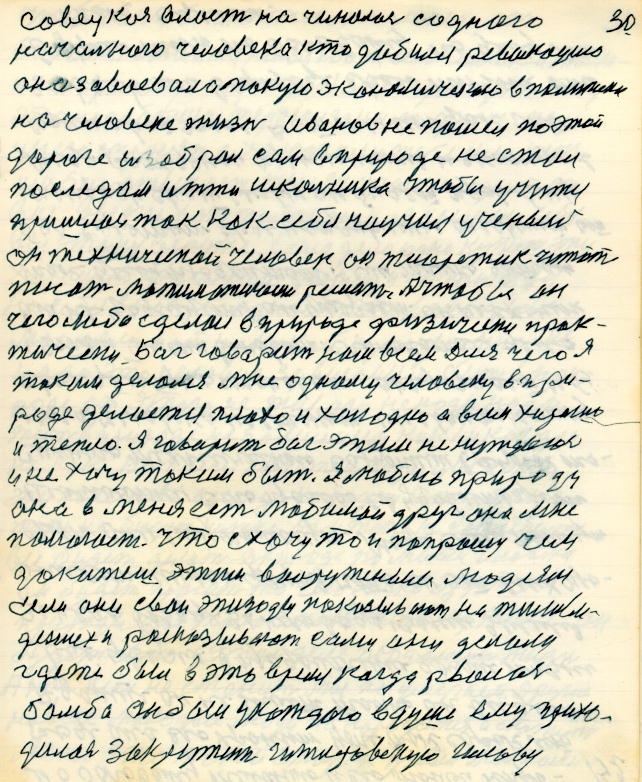 30
совецкоя власт на чиналас содного
начального человека кто добился революцию
она завоевало такую экономическою вполитики
на человеке жизн Иванов не пошел поэтой
дороге изобрал сам вприроде не стал
последам итти школника чтобы учити
пришлос так как себя научил ученый
он технический человек он тиоретик читат
писат матиматически решат. А чтобы он
чего либо сделал вприроде физически прак-
тически. Бог говорит нам всем для чего я
таким делался мне одному человеку впри-
роде делается плохо и холодно а всем хорошо
и тепло. Я говорит бог этим не нуждаюся
и не хочу таким быт. Я люблю природу
она в меня ест любимой друг она мне
помогает. Что схочу то и попрошу чем
докажеш этим вооруженным людям
если они свои эпизоды показывают на
дезях и расказывают сами они делали
где же были вэто время когда рвалас
бомба он был укаждого вдуше ему прихо-
дилос закрыти гитлеровскую голову